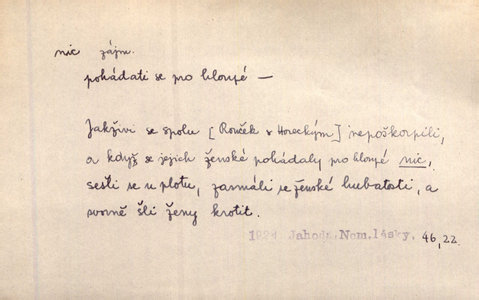 nic zájm.
pohádati se pro hloupé —
Jakživi se spolu [Rouček s Horeckým] nepoškorpili,
a když se jejich ženské pohádaly pro hloupé nic,
sešli se u plotu, zasmáli se ženské hubatosti, a
svorně šli ženy krotit.
1924 Jahoda, Nem. lásky, 46,22